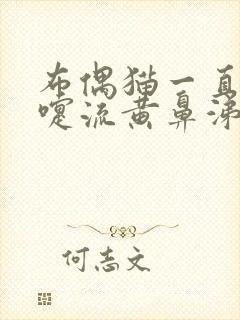 布偶猫一直
嚏流黄鼻涕
何志文